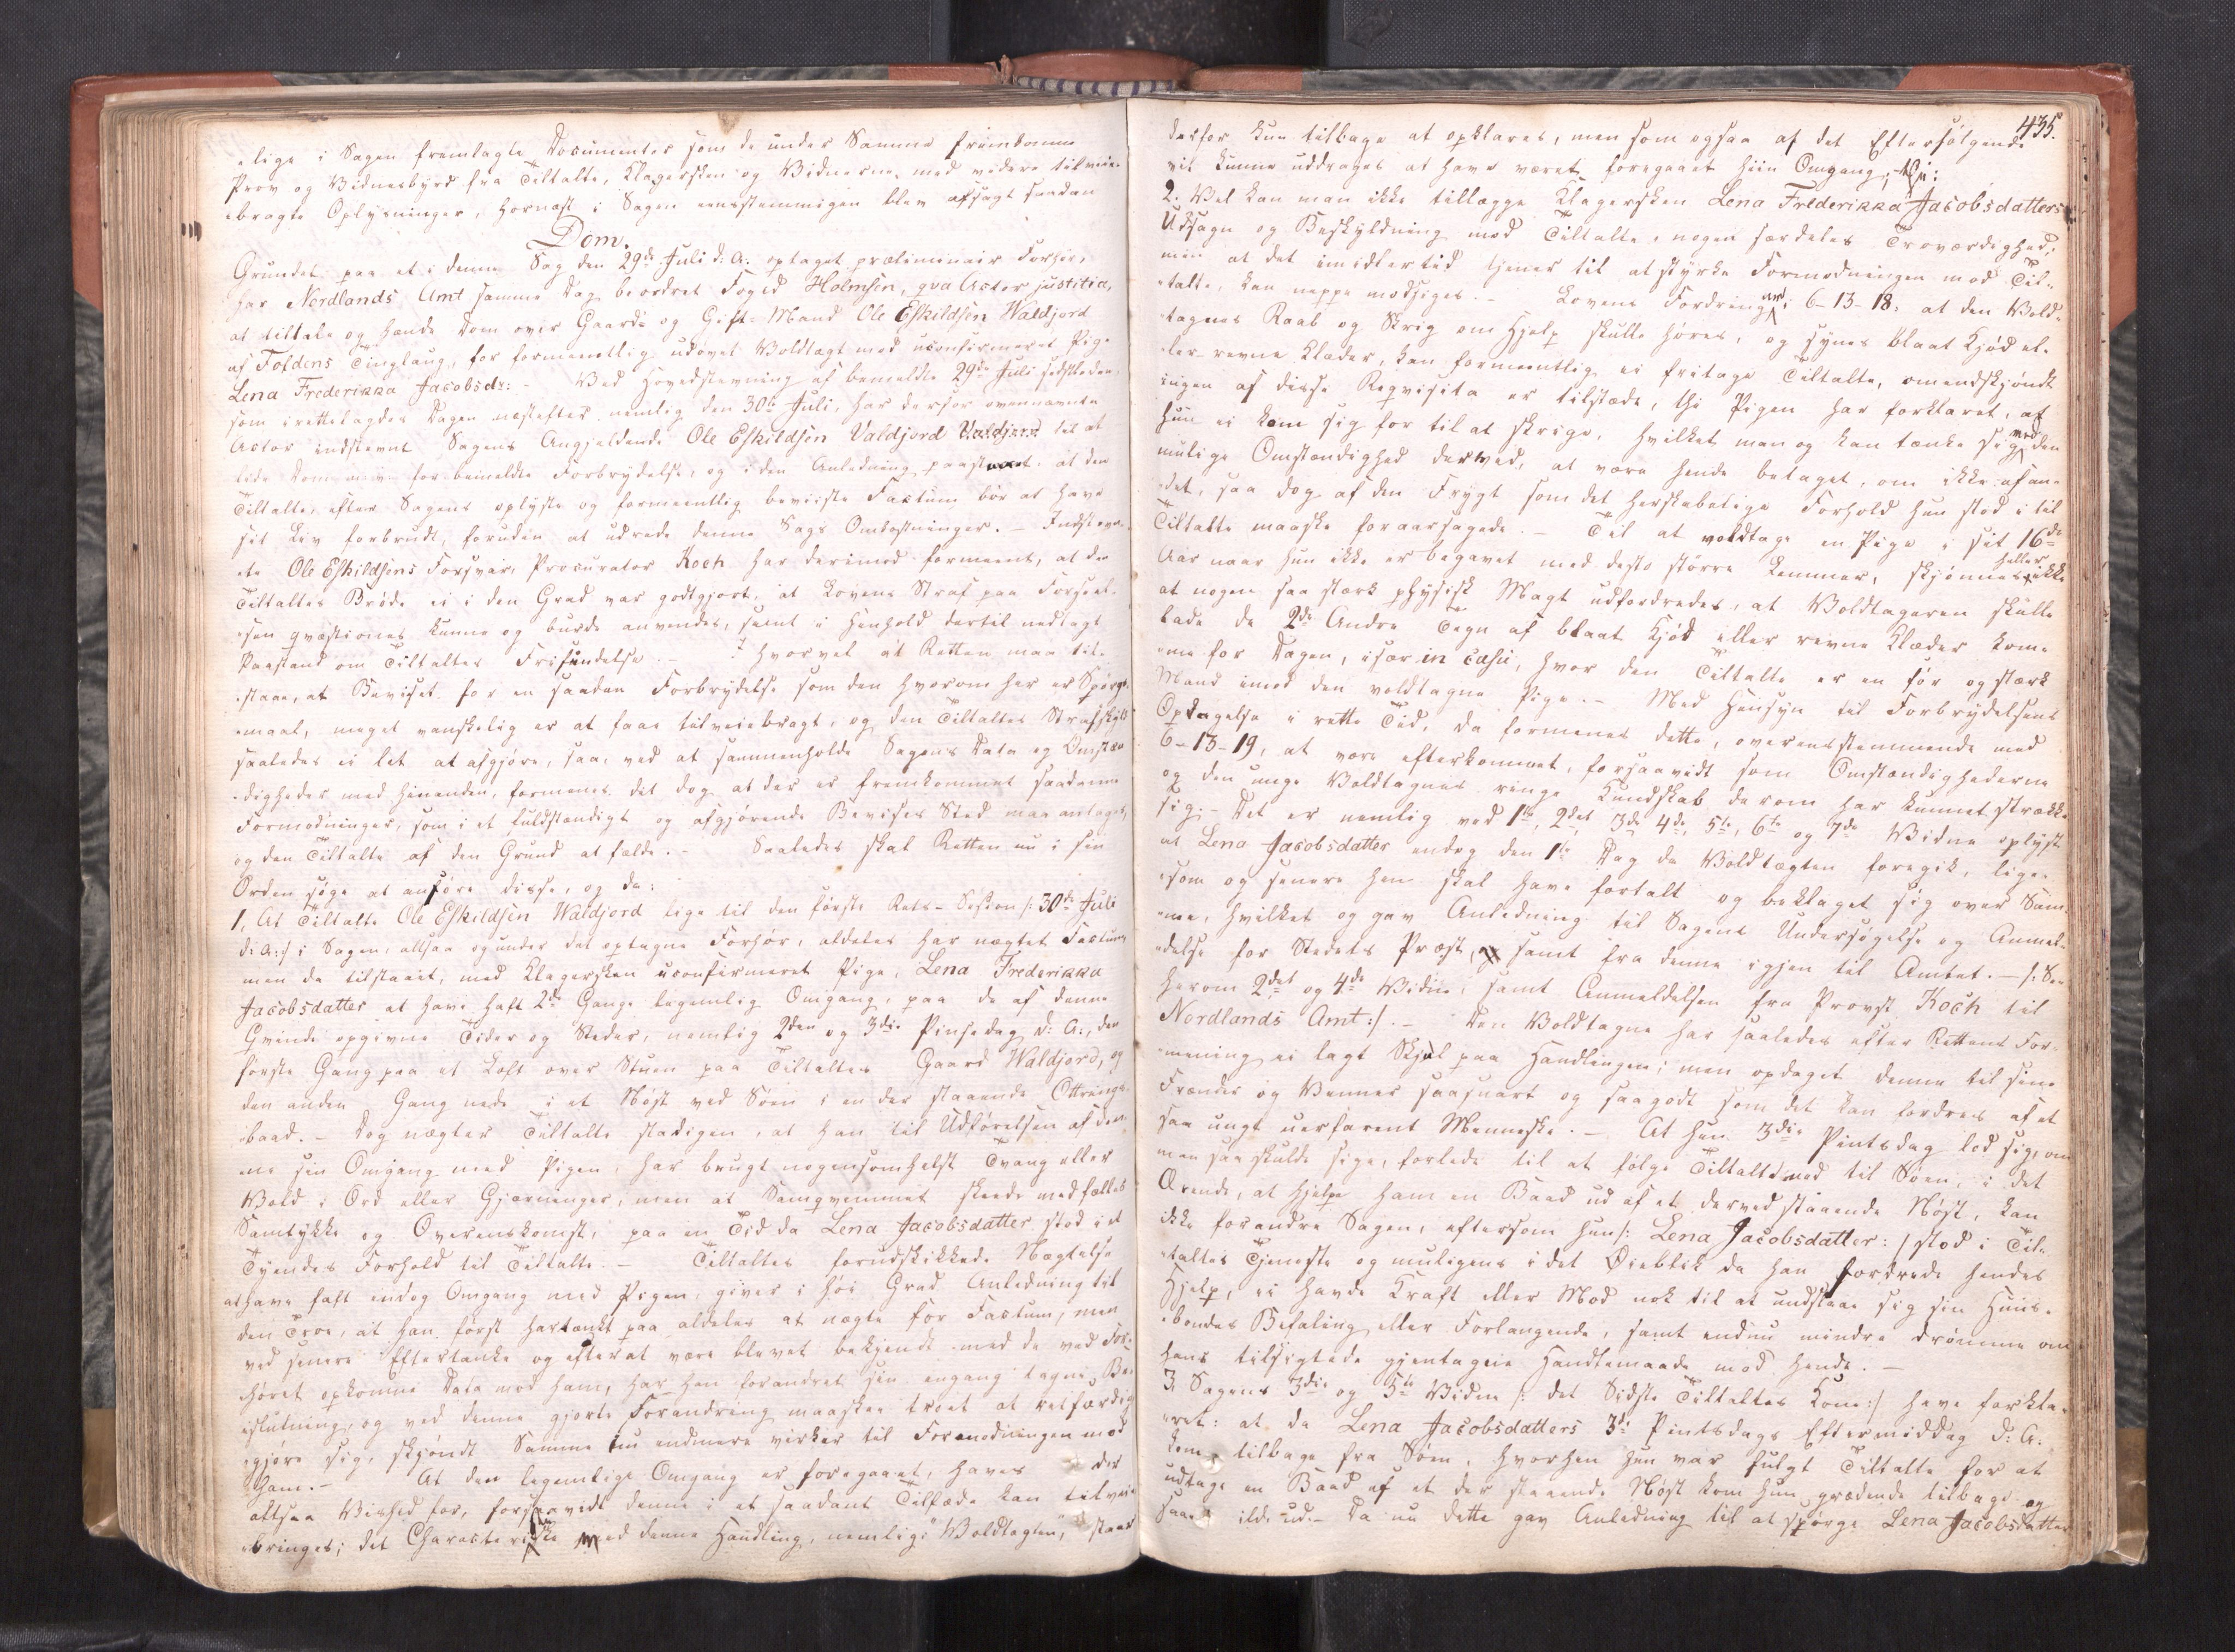 -lige i Sagen fremlagte Documenter som de under Samme fremkomne
Prov og Vidnesbyrd fra Tiltalte, Klagersken og Vidnerne, med videre tilveie-
-bragte Oplysninger, hvornæst i Sagen eensstemmigen blev afsagt saadan
Dom.
Grundet paa et i denne Sag den 29de Juli d: A: optaget præliminair Forhør,
har Nordlands Amt samme Dag beordret Foged Holmsen, qva Actor justitiæ,
at tiltale og hænde Dom over Gaard- og Gift-Mand Ole Eskildsen Waldjord
af Foldens Tinglaug, for formeentlig udøvet Voldtægt mod uconfirmeret Pige
Lena Fredrikka Jacobsdr: - Ved Hovedstevning af bemeldte 29de Juli sidstleden,
som irettelagdes Dagen næstefter nemlig den 30te Juli, har derfor ovennævnte
Actor indstevnt Sagens Angjeldende Ole Eskildsen Valdjord Valdjord til at
lide Dom for bemeldte Forbrydelse, og i den Anledning paastaaet, at den
Tiltalte, efter Sagens oplyste og formeentlig beviiste Factum bør at have
sit Liv forbrudt, foruden at udrede denne Sags Omkostninger. - Indstevn-
-te Ole Eskildsens Forsvar, Procurator Koch har derimod formeent, at den
Tiltaltes Brøde ei i den Grad var godtgjort, at Lovens Straf paa Forseel-
-sen qvæstiones kunne og burde anvendes, samt i Henhold dertil nedlagt
Paastand om Tiltaltes Frifindelse. - I hvorvel at Retten maa til-
-staae, at Beviset for en saadan Forbrydelse som den hvorom her er Spørgs-
-maal, meget vanskelig er at faae tilveiebragt, og den Tiltaltes Strafskyld
saaledes ei let at afgjøre, saa, ved at sammenholde Sagens Data og Omstæn-
-digheder med hinanden, formenes det dog at der er fremkommet saadanne
Formodninger, som i et fuldstændigt og afgjørende Bevises Sted maa antages,
og den Tiltalte af den Grund at fælde. - Saaledes skal Retten nu i sin
Orden søge at anføre disse, og da:
1, At Tiltalte Ole Eskildsen Waldjord lige til den første Rets-Session /: 30te Juli
d: A: :/ i Sagen, altsaa og under det optagne Forhør, aldeles har nægtet Factum,
men da tilstaaet, med Klagersken uconfirmeret Pige, Lena Frederikka
Jacobsdatter at have haft 2de Gange legemlig Omgang, paa de af denne
Qvinde opgivne Tider og Steder, nemlig 2den og 3die Pinsedag d: A:, den
første Gang paa et Loft over Stuen paa Tiltaltes Gaard Waldjord, og
den anden Gang nede i et Nøst ved Søen i en der staaende Ottrings-
-baad. - Dog nægter Tiltalte stadigen, at han til Udførelsen af den-
-ne sin Omgang med Pigen, har brugt nogensomhelst Tvang eller
Vold i Ord eller Gjerninger, men at Samqvemmet skeede med fælles
Samtykke og Overenskomst, paa en Tid da Lena Jacobsdatter stod i et
Tyendes Forhold til Tiltalte. - Tiltaltes forudskikkede Nægtelse
at have haft endog Omgang med Pigen, giver i høi Grad Anledning til
den Troe, at han først har tænkt paa aldeles at nægte for Factum, men
ved senere Eftertanke og efterat være blevet bekjendt med de ved For-
-høret opkomne Data mod ham, har han forandret sin engang tagne Be-
-slutning, og ved denne gjorte Forandring maaskee troet at retfærdig-
-gjøre sig, skjøndt Samme nu endmere virker til Formodningen mod
ham. - At den legemlige Omgang er foregaaet, haves der
altsaa Vished for, forsaavidt denne i et saadant Tilfælde kan tilveie-
-bringes; det Characteristiske ved denne Handling, nemlig: "Voldtægten", staar
435.
derfor kun tilbage at opklares, men som ogsaa af det Efterfølgende
vil kunne uddrages at have været foregaaet hiin Omgang; thi:
2. Vel kan man ikke tillægge Klagersken Lena Frederikka Jacobsdatters
Udsagn og Beskyldning mod Tiltalte, nogen særdeles Troværdighed,
men at det imidlertid tjener til at styrke Formodningen mod Til-
-talte, kan neppe modsiges. - Lovens Fordring ved 6-13-18, at den Vold-
-tagnes Raab og Skrig om Hjelp skulle høres, og synes blaat Kjød el-
-ler revne Klæder, kan formeentlig ei fritage Tiltalte, omendskjøndt
ingen af disse Reqvisita er tilstæde, thi Pigen har forklaret, at
hun ei kom sig for til at skrige, hvilket man og kan tænke sig ved den
mulige Omstændighed derved, at være hende betaget, om ikke af an-
-det, saa dog af den Frygt som det herskabelige Forhold hun stod i til
Tiltalte maaske foraarsagede. - Til at voldtage en Pige i sit 16de
Aar naar hun ikke er begavet med desto større Lemmer, skjønnes heller ikke
at nogen saa stærk physisk Magt udfordredes, at Voldtageren skulle
lade de 2de Andre Tegn af blaat Kjød eller revne Klæder kom-
-me for Dagen, især in casu, hvor den Tiltalte er en før og stærk
Mand imod den voldtagne Pige. - Med Hensyn til Forbrydelsens
Opdagelse i rette Tid, da formenes dette, overensstemmende med
6-13-19, at være efterkommet, forsaavidt som Omstændighederne
og den unge Voldtagnes ringe Kundskab derom har kunnet strække
sig. - Det er nemlig ved 1ste, 2det, 3die 4de, 5te, 6te og 7de Vidne oplyst
at Lena Jacobsdatter endog den 1ste Dag da Voldtægten foregik, lige-
-som og senere hen skal have fortalt og beklaget sig over Sam-
-me, hvilket og gav Anledning til Sagens Undersøgelse og Anmel-
-delse for Stedets Præst, samt fra denne igjen til Amtet. - /: Se
herom 2det og 4de Vidne, samt Anmeldelsen fra Provst Koch til
Nordlands Amt :/. - Den Voldtagne har saaledes efter Rettens For-
-mening ei lagt Skjul paa Handlingen; men opdaget denne til sine
Frænder og Venner saasnart og saagodt som det kan fordres af et
saa ungt uerfarent Menneske. - At hun 3die Pintsdag lod sig, om
man saa skulde sige, forlede til at følge Tiltalte med til Søen, i det
Ærende, at hjelpe ham en Baad ud af et derved staaende Nøst, kan
ikke forandre Sagen, eftersom hun /: Lena Jacobsdatter :/ stod i Til-
-taltes Tjeneste og muligens i det Øieblik da han fordrede hendes
Hjelp, ei havde Kraft eller Mod nok til at undslaae sig sin Huus-
-bondes Befaling eller Forlangende, samt endnu mindre drømme om
hans tilsigtede gjentagne Handlemaade mod hende. -
3, Sagens 3die og 5te Vidne /: det Sidste Tiltaltes Kone :/ have forkla-
-ret: at da Lena Jacobsdatters 3die Pintsdags Eftermiddag d: A:
kom tilbage fra Søen, hvorhen hun var fulgt Tiltalte for at
udtage en Baad af et der staaende Nøst kom hun grædende tilbage og
saae ilde ud. - Da nu dette gav Anledning til at spørge Lena Jacobsdatter